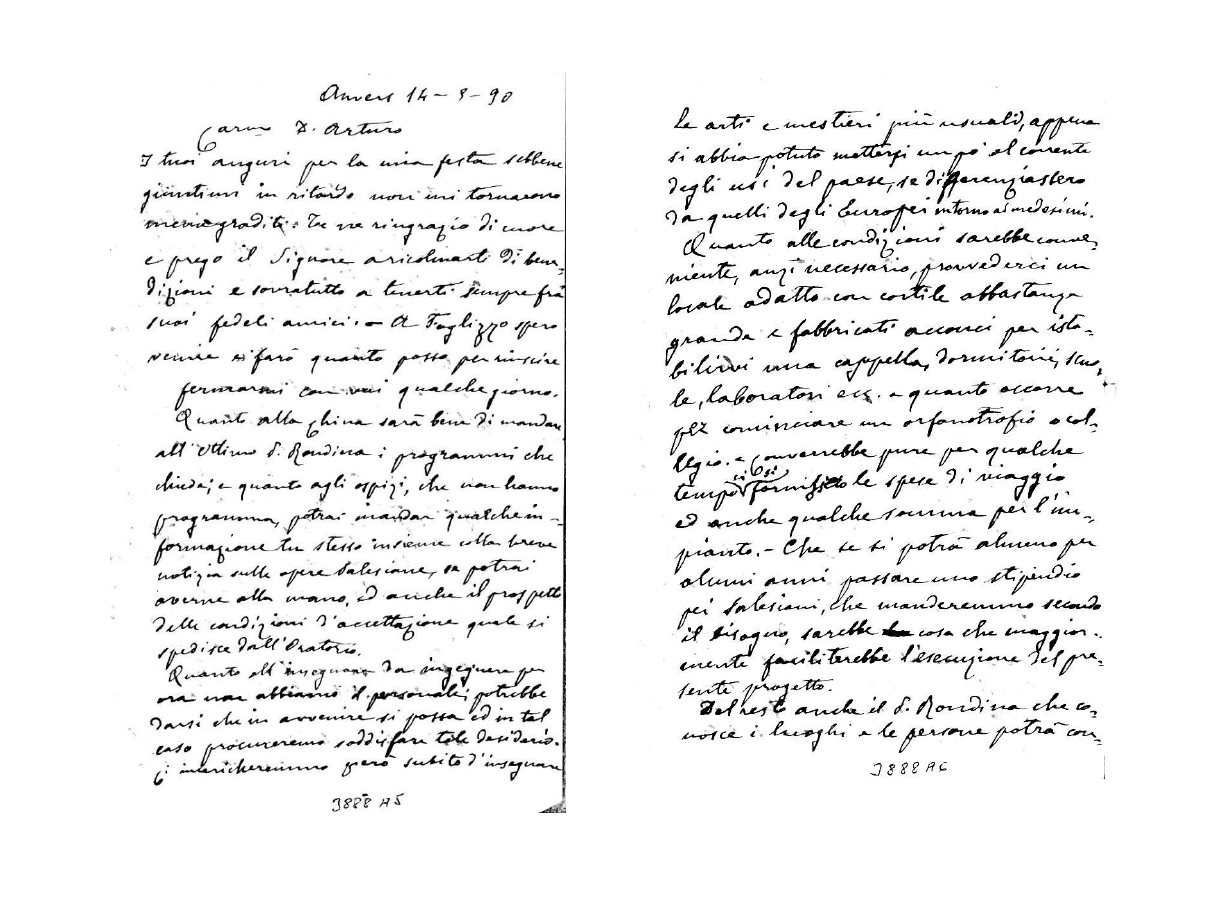 Anvers 14-8-90
Caro D. Arturo
I tuoi auguri per la mia festa sebbene
giuntimi in ritardo non mi tornarono
meno graditi. Te ne ringrazio di cuore
e prego il Signore a ricolmarti di bene-
dizioni e sovratutto a tenerti sempre frà
suoi fedeli amici. - A Foglizzo spero
venire e farò quanto posso per riuscire
fermarmi con voi qualche giorno.
Quanto alla China sarà bene di mandare
all'ottimo S. Rondina i programmi che
chiede; e quanto agli ospizi, che non hanno
programma, potrai mandar qualche in-
formazione tu stesso insieme colla breve
notizia sulle opere Salesiane, se potrai
averne alla mano, ed anche il prospetto
delle condizioni d'accettazione quale si
spedisce dall'Oratorio.
Quanto all'insegnare da ingegnere per
ora non abbiamo il personale; potrebbe
darsi che in avvenire si possa ed in tal
caso procureremo soddisfare tale desiderio.
Ci incaricheremmo però subito d'insegnare
3888 A5
le arti e mestieri più usuali, appena
si abbia potuto mettersi un pó al corrente
degli usi del paese, se differenziassero
da quelli degli Europei intorno ai medesimi.
Quanto alle condizioni sarebbe conve-
niente, anzi necessario, provvederci un
locale adatto con cortile abbastanza
grande e fabbricati acconci per ista-
bilirvi una cappella, dormitorii, scuo-
le, laboratori ecc. e quanto occorre
per cominciare un orfanotrofio o col-
legio. e converrebbe pure per qualche
tempo ci si fornisse le spese di viaggio
ed anche qualche somma per l'im-
pianto. - Che se si potrà almeno per
alcuni anni passare uno stipendio
pei Salesiani, che manderemmo secondo
il bisogno, sarebbe cosa che maggior-
mente faciliterebbe l'esecuzione del pre-
sente progetto.
Del resto anche il S. Rondina che co-
nosce i luoghi e le persone potrà con-
3888 A6